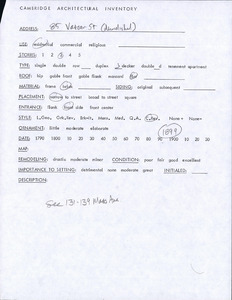 CAMBRIDGE ARCHITECTURAL INVENTORY
ADDRESS: 85 Vassar St (demolished)
USE: residential commercial religious
STORIES: 1 2 3 4 5
TYPE: single double row duplex decker double d tenement apartment
ROOF: hip gable front gable flank mansard flat
MATERIAL: frame brick SIDING: original subsequent
PLACEMENT: oblique to street broad to street square
ENTRANCE: flank side front center
STYLE: Ital. Mans. Med. Q.A. None+ None-
ORNAMENT: little moderate elaborate
1899
DATE: 1790 1800 10 20 30 40 50 60 70 80 90 1900 10 20 30
MAP:
REMODELING: drastic moderate minor CONDITION: poor fair good excellent
IMPORTANCE TO SETTING: detrimental some moderate great INITIALED:
DESCRIPTION:
See 131-139 Mass Ave